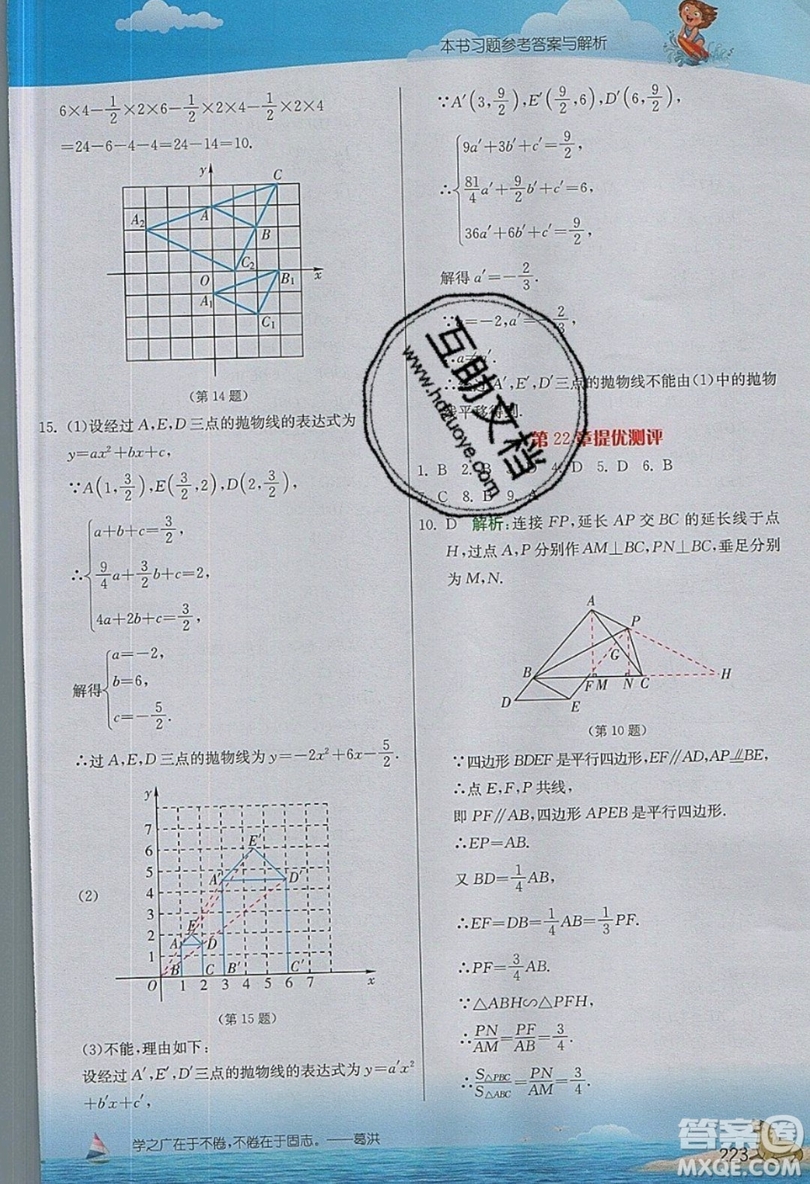 本书习题参考答案与解析
6×4-1/2×2×6-1/2×2×4-1/2×2×4
=24-6-4-4=24-14=10.
y
C
A₂
A
B
C₂
O
B₁
x
A₁
C₁
(第14题)
15. (1)设经过A,E,D三点的抛物线的表达式为
y=ax²+bx+c,
∵A(1,3/2),E(3/2,2),D(2,3/2),
∴{a+b+c=3/2,
9/4a+3/2b+c=2,
4a+2b+c=3/2,
解得{a=-2,
b=6,
c=-5/2.
∴过A,E,D三点的抛物线为y=-2x²+6x-5/2.
(2)
y
7
6
5
4
3
2
1
E′
A′
D′
E
A
D
B
C
B′
C′
O
1 2 3 4 5 6 7
x
(第15题)
(3)不能,理由如下:
设经过A′,E′,D′三点的抛物线的表达式为y=a′x²
+b′x+c′,
∵A′(3,9/2),E′(9/2,6),D′(6,9/2),
∴{9a′+3b′+c′=9/2,
81/4a′+9/2b′+c′=6,
36a′+6b′+c′=9/2,
解得a′=-2/3.
=-2,a′=-2/3,
A′,E′,D′三点的抛物线不能由(1)中的抛物
平移得到.
互助文档
www.hdzuoye.com
第22章提优测评
1. B 2. 4. D 5. D 6. B
C 8. B 9.
10. D 解析:连接FP,延长AP交BC的延长线于点
H,过点A,P分别作AM⊥BC,PN⊥BC,垂足分别
为M,N.
A
P
G
B
F M N C
H
D
E
(第10题)
∵四边形BDEF是平行四边形,EF∥AD,AP⫽BE,
∴点E,F,P共线,
即PF∥AB,四边形APEB是平行四边形.
∴EP=AB.
又BD=1/4AB,
∴EF=DB=1/4AB=1/3PF.
∴PF=3/4AB.
∵△ABH∽△PFH,
∴PN/AM=PF/AB=3/4.
∴S△PBC/S△ABC=PN/AM=3/4.
学之广在于不倦,不倦在于固志。——葛洪
223
答案圈
MXQE.COM